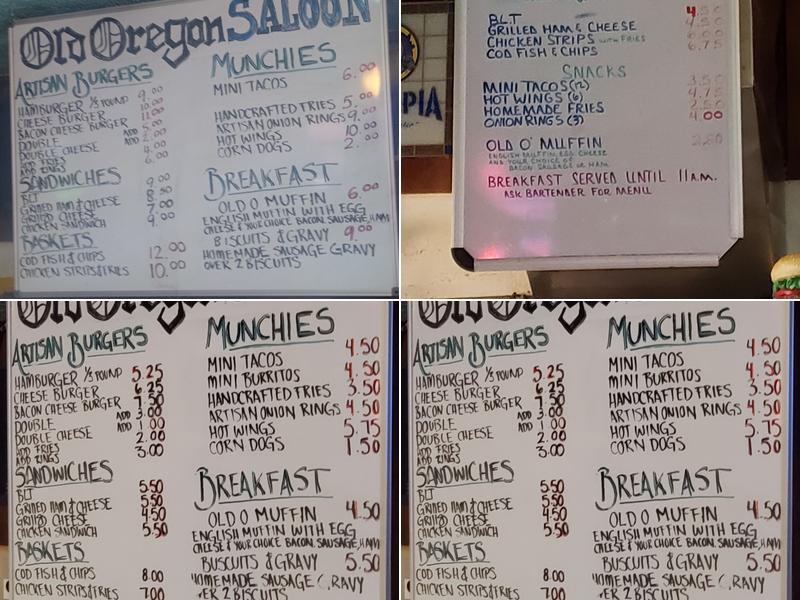 Old Oregon SALOON
ARTISAN BURGERS
HAMBURGER 1/3 POUND 9.00
CHEESE BURGER 10.00
BACON CHEESE BURGER 11.00
DOUBLE ADD
DOUBLE CHEESE ADD 2.00
ADD FRIES 4.00
ADD RINGS 6.00
SANDWICHES
BLT 9.00
GRILLED HAM & CHEESE 8.50
GRILLED CHEESE 7.00
CHICKEN SANDWICH 9.00
BASKETS
COD FISH & CHIPS 12.00
CHICKEN STRIPS & FRIES 10.00
MUNCHIES
MINI TACOS 6.00
HANDCRAFTED FRIES 5.00
ARTISAN ONION RINGS 9.00
HOT WINGS 10.00
CORN DOGS 2.00
BREAKFAST
OLD O MUFFIN 6.00
ENGLISH MUFFIN WITH EGG
CHEESE & YOUR CHOICE BACON, SAUSAGE, HAM
BISCUITS & GRAVY 9.00
HOMEMADE SAUSAGE GRAVY
OVER 2 BISCUITS
BLT 4.50
GRILLED HAM & CHEESE
CHICKEN STRIPS WITH FRIES 6.00
COD FISH & CHIPS 6.75
PIA
SNACKS
MINI TACOS (12) 3.50
HOT WINGS (6) 4.75
HOMEMADE FRIES 2.50
ONION RINGS (3) 4.00
OLD O' MUFFIN 2.50
ENGLISH MUFFIN, EGG, CHEESE
AND YOUR CHOICE OF
BACON SAUSAGE OR HAM
BREAKFAST SERVED UNTIL 11 A.M.
ASK BARTENDER FOR MENU
Old Oregon
ARTISAN BURGERS
HAMBURGER 1/3 POUND 5.25
CHEESE BURGER 6.25
BACON CHEESE BURGER 7.50
DOUBLE ADD 3.00
DOUBLE CHEESE ADD 1.00
ADD FRIES 2.00
ADD RINGS 3.00
SANDWICHES
BLT 5.50
GRILLED HAM & CHEESE 5.50
GRILLED CHEESE 4.50
CHICKEN SANDWICH 5.50
BASKETS
COD FISH & CHIPS 8.00
CHICKEN STRIPS & FRIES 7.00
MUNCHIES
MINI TACOS 4.50
MINI BURRITOS 4.50
HANDCRAFTED FRIES 3.50
ARTISAN ONION RINGS 4.50
HOT WINGS 5.75
CORN DOGS 1.50
BREAKFAST
OLD O MUFFIN 4.50
ENGLISH MUFFIN WITH EGG
CHEESE & YOUR CHOICE BACON, SAUSAGE, HAM
BUSCUITS & GRAVY 5.50
HOMEMADE SAUSAGE GRAVY
OVER 2 BISCUITS
Old Oregon
ARTISAN BURGERS
HAMBURGER 1/3 POUND 5.25
CHEESE BURGER 6.25
BACON CHEESE BURGER 7.50
DOUBLE ADD 3.00
DOUBLE CHEESE ADD 1.00
ADD FRIES 2.00
ADD RINGS 3.00
SANDWICHES
BLT 5.50
GRILLED HAM & CHEESE 5.50
GRILLED CHEESE 4.50
CHICKEN SANDWICH 5.50
BASKETS
COD FISH & CHIPS 8.00
CHICKEN STRIPS & FRIES 7.00
MUNCHIES
MINI TACOS 4.50
MINI BURRITOS 4.50
HANDCRAFTED FRIES 3.50
ARTISAN ONION RINGS 4.50
HOT WINGS 5.75
CORN DOGS 1.50
BREAKFAST
OLD O MUFFIN 4.50
ENGLISH MUFFIN WITH EGG
CHEESE & YOUR CHOICE BACON, SAUSAGE, HAM
BUSCUITS & GRAVY 5.50
HOMEMADE SAUSAGE GRAVY
OVER 2 BISCUITS